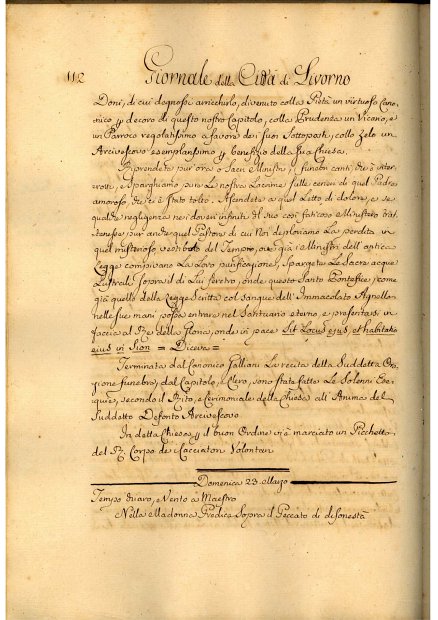 112 Giornale della Città di Livorno
Doni, di cui dagnossi arricchirlo, divenuto colla Pietà un virtuoso Cano-
nico p decoro di questo nostro Capitolo, colla Prudenza un Vicario, e
un Parroco regolatissimo a favore dei suoi Sottoposti, collo zelo un
Arcivescovo esemplarissimo p benefizio della sua Chiesa.
Riprendete pur ora o Sacri Ministri, i funebri canti, che s' inter-
rosse, e sparghiamo pure le nostre Lacrime sulle ceneri di quel Padre
amoroso, che ci è stato tolto. Ascendete a quel Letto di dolore, e se
qualche negligenza nei doveri infiniti del suo così faticoso Ministero trat-
tenesse pur anche quel Pastore di cui Noi deploriamo la perdita in
quel misterioso vestibolo del Tempio, ove già i Ministri dell' antica
Legge compivano la Loro purificazione, Spargete le Sacre acque
Lustrali sopra il di Lui feretro, onde questo Santo Pontefice, come
già quello della Legge Scritta col sangue dell' Immacolato Agnello
nelle sue mani possa entrare nel Santuario eterno, e presentarsi in
faccia al Re della Gloria, onde in pace Sit Locus ejus, et habitatio
ejus in Sion = Diceva =
Terminata dal Canonico Galliani la recita della Suddetta Ora-
zione funebre, dal Capitolo, e Clero, sono state fatte le Solenni Ese-
quie, secondo il Rito, e Cerimoniale della Chiesa all' Anima del
Suddetto Defonto Arcivescovo
In detta Chiesa p il buon Ordine vi à marciato un Picchetto
del R. Corpo de Cacciatori Volontari
Domenica 23. Marzo
Tempo chiaro, Vento a Maestro
Nella Madonna Predica Sopra il Peccato di disonestà